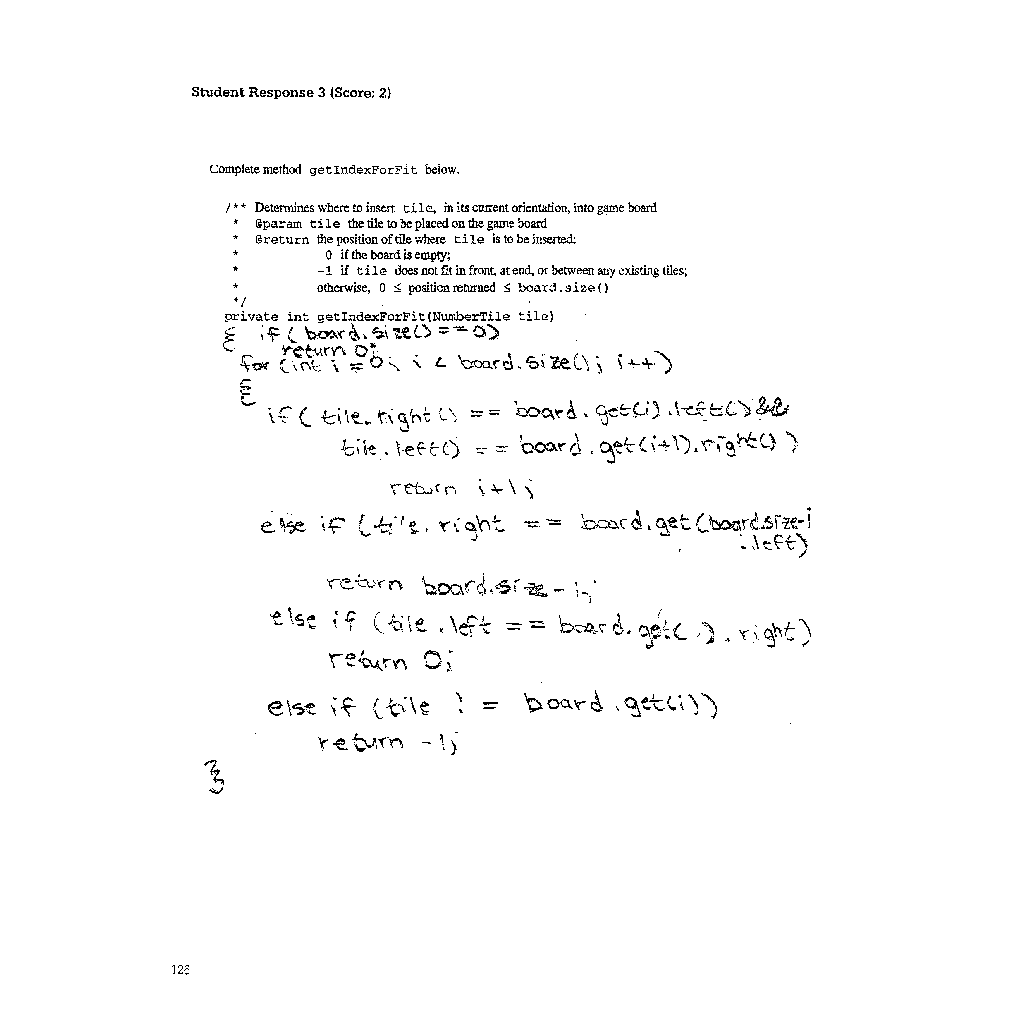 Student Response 3 (Score: 2)
Complete method getIndexForFit below.
/** Determines where to insert tile, in its current orientation, into game board
* @param tile the tile to be placed on the game board
* @return the position of tile where tile is to be inserted:
* 0 if the board is empty;
* -1 if tile does not fit in front, at end, or between any existing tiles;
* otherwise, 0 ≤ position returned ≤ board.size()
*/
private int getIndexForFit(NumberTile tile)
{ if ( board.size() == 0)
return 0;
for (int i = 0; i < board.size(); i++)
{
if ( tile.right () == board.get(i).left() &&
tile.left() == board.get(i+1).right() )
return i+1;
else if (tile.right == board.get(board.size-1
.left)
return board.size - 1;
else if (tile.left == board.get( ).right)
return 0;
else if (tile != board.get(i))
return -1;
}
}